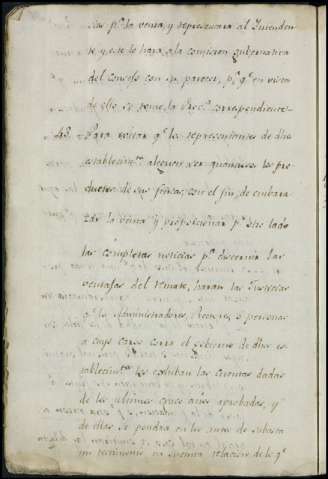 cias pª la venta, y representará al Yntenden-
te y este lo hará á la comision gubernativa
del Consejo con su parecer, pª qᵉ en vista
de ello se tome la Prov.ⁿ correspondiente
48. Para evitar qᵉ los representantes de dhos
establecim.ᵗᵒˢ alguen ser quantiosos los pro-
ductos de sus fincas, con el fin de embara-
zar la venta y proporcionar pʳ otro lado
las completas noticias pª discernir las
ventajas del remate, harán las Justicias
qᵉ los Administradores, Rectores, ó personas
á cuyo cargo corra el gobierno de dhos es-
tablecim.ᵗᵒˢ les exhiban las cuentas dadas
de los ultimos cinco años aprobadas, y
de ellas se pondrá en los autos de subasta
un testimonio en sucinta relacion de lo qᵉ